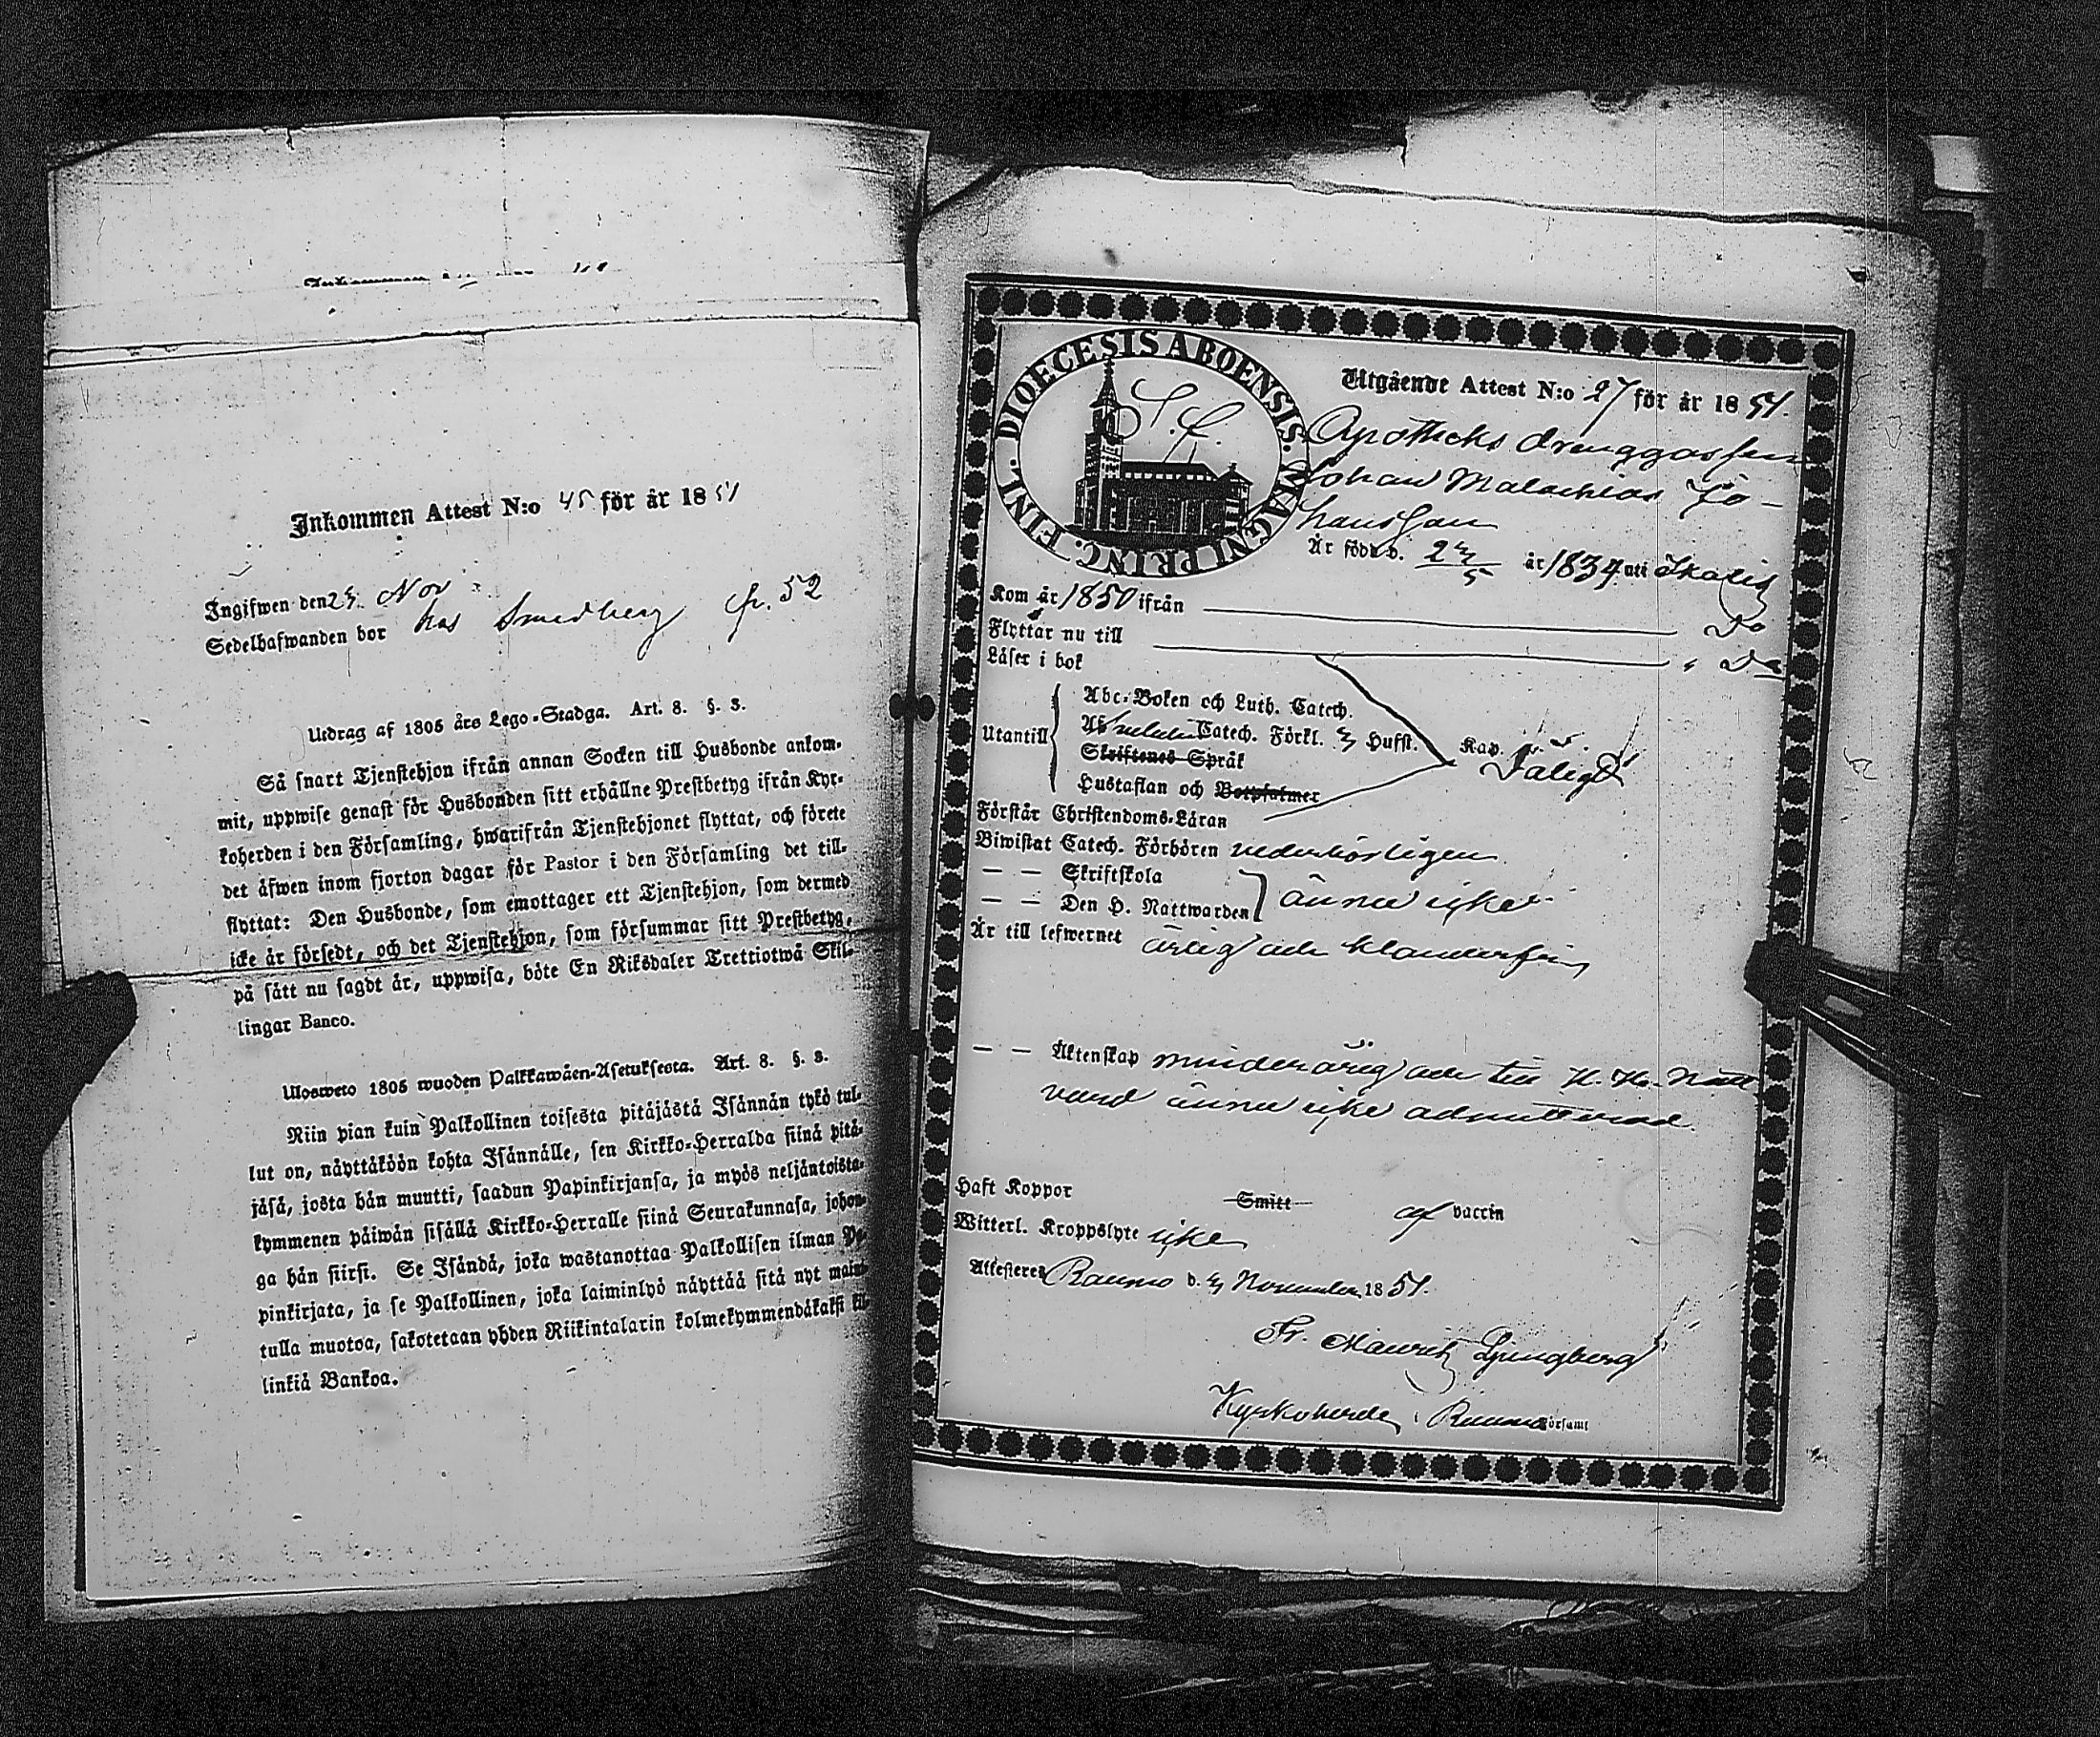 Inkommen Attest N:o 45 för år 1851
Ingifwen den 25. Nov
Sedelhafwanden bor hos Smedberg fr. 52
Utdrag af 1805 års Lego-Stadga. Art. 8. §. 3.
Så snart Tjenstehjon ifrån annan Socken till Husbonde ankom-
mit, uppwise genast för Husbonden sitt erhållne Prestbetyg ifrån Kyr-
koherden i den Församling, hwarifrån Tjenstehjonet flyttat, och förete
det åfwen inom fjorton dagar för Pastor i den Församling det till-
flyttat: Den Husbonde, som emottager ett Tjenstehjon, som dermed
icke år försedt, och det Tjenstehjon, som försummar sitt Prestbetyg,
på sått nu sagdt år, uppwisa, böte En Riksdaler Trettiotwå Skil-
lingar Banco.
Ulosweto 1805 wuoden Palkkawåen-Asetuksesta. Art. 8. §. 3.
Niin pian kuin Palkollinen toisesta pitåjåstå Isånnån tykö tul-
lut on, nåyttåköön kohta Isånnålle, sen Kirkko-Herralda siinå pitå-
jåså, josta hån muutti, saadun Papinkirjansa, ja myös neljåntoista-
kymmenen påiwån sisållå Kirkko-Herralle siinå Seurakunnasa, johon-
ga hån siirsi. Se Isåndå, joka wastanottaa Palkollisen ilman Pa-
pinkirjata, ja se Palkollinen, joka laiminlyö nåyttåå sitå nyt mainit-
tulla muotoa, sakotetaan yhden Riikintalarin kolmekymmendåkaksi kil-
linkiå Bankoa.
DIOECESIS ABOENSIS. MAGNI PRINC. FINL.
Utgående Attest N:o 27 för år 1851.
Apotheks drenggossen
Johan Malachias Jo-
hansson
Är född d. år 1834 uti
Kom år 1850 ifrån Do
Flyttar nu till Do
Låser i bok
Utantill
Abc-Boken och Luth. Catech.
Catech. Förkl. Hufst. Kap.
Skriftenes Språk
Dåligt
Hustaflan och Botpsalmer
Förstår Christendoms-Låran
Biwistat Catech. Förhören vederbörligen
— — Skriftskola
— — Den H. Nattwarden ännu icke
År till lefwernet ärlig och klanderfri
— — Åktenskap minderårig och till H. Hr. Natt
vard ännu icke admitterad.
Haft Koppor Smitt af vaccin
Witterl. Kroppslyte icke
Attesterer Raumo d. November 1851.
Fr. Mauritz Ljungberg
Kyrkoherde i Raumo Församl